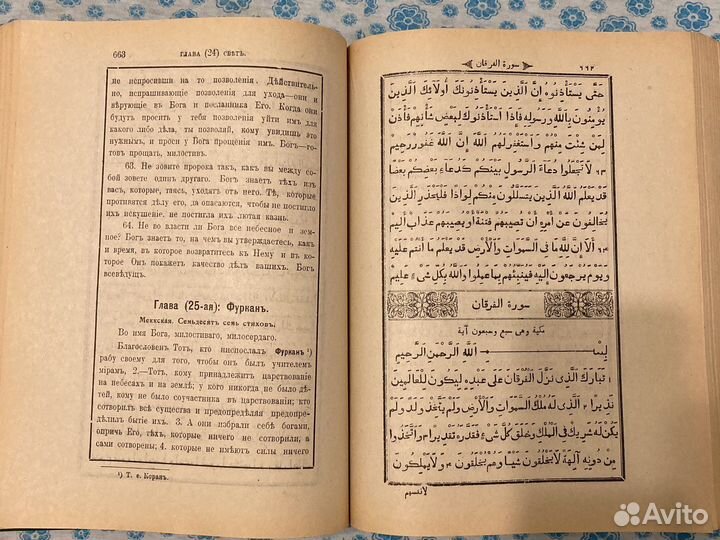 663
ГЛАВА (24) СВѢТЪ.
не испросивши на то позволенія. Дѣйствитель-
но, испрашивающіе позволенія для ухода—они и
вѣрующіе въ Бога и посланника Его. Когда они
будутъ просить у тебя позволенія уйти имъ для
какого либо дѣла, ты позволяй, кому увидишь это
нужнымъ, и проси у Бога прощенія имъ. Богъ—го-
товъ прощать, милостивъ.
63. Не зовите пророка такъ, какъ вы между со-
бой зовете одинъ другаго. Богъ знаетъ тѣхъ изъ
васъ, которые, таясь, уходятъ отъ него. Тѣ, которые
противятся дѣлу его, да опасаются, чтобы не постигло
ихъ искушеніе, не постигла ихъ лютая казнь.
64. Не во власти ли Бога все небесное и зем-
ное? Богъ знаетъ то, на чемъ вы утверждаетесь, какъ
и время, въ которое возвратитесь къ Нему и въ кото-
рое Онъ покажетъ качество дѣлъ вашихъ. Богъ
всевѣдущъ.
Глава (25-ая): Фурканъ.
Меккская. Семьдесятъ семь стиховъ.
Во имя Бога, милостиваго, милосердаго.
Благословенъ Тотъ, кто ниспослалъ Фурканъ ¹)
рабу своему для того, чтобы онъ былъ учителемъ
мірамъ, 2.—Тотъ, кому принадлежитъ царствованіе
на небесахъ и на землѣ; у кого никогда не было дѣ-
тей, кому не было соучастника въ царствованіи; кто
сотворилъ всѣ существа и предопредѣляя предопре-
дѣлилъ бытіе ихъ. 3. А они избрали себѣ богами,
опричь Его, тѣхъ, которые ничего не сотворили, а
сами сотворены; 4. которые не имѣютъ силы ничего
¹) Т. е. Коранъ.
سورة الفرقان
٦٦٣
حَتَّى يَسْتَأْذِنُوهُ إِنَّ الَّذِينَ يَسْتَأْذِنُونَكَ أُولَائِكَ الَّذِينَ
يُؤْمِنُونَ بِاللَّهِ وَرَسُولِهِ فَإِذَا اسْتَأْذَنُوكَ لِبَعْضِ شَأْنِهِمْ فَأْذَنْ
لِمَنْ شِئْتَ مِنْهُمْ وَاسْتَغْفِرْ لَهُمُ اللَّهَ إِنَّ اللَّهَ غَفُورٌ رَحِيمٌ
٦٣ لَا تَجْعَلُوا دُعَاءَ الرَّسُولِ بَيْنَكُمْ كَدُعَاءِ بَعْضِكُمْ بَعْضًا
قَدْ يَعْلَمُ اللَّهُ الَّذِينَ يَتَسَلَّلُونَ مِنْكُمْ لِوَاذًا فَلْيَحْذَرِ الَّذِينَ
يُخَالِفُونَ عَنْ أَمْرِهِ أَنْ تُصِيبَهُمْ فِتْنَةٌ أَوْ يُصِيبَهُمْ عَذَابٌ أَلِيمٌ
٦٤ أَلَا إِنَّ لِلَّهِ مَا فِي السَّمَوَاتِ وَالْأَرْضِ قَدْ يَعْلَمُ مَا أَنْتُمْ عَلَيْهِ
وَيَوْمَ يُرْجَعُونَ إِلَيْهِ فَيُنَبِّئُهُمْ بِمَا عَمِلُوا وَاللَّهُ بِكُلِّ شَيْءٍ عَلِيمٌ
سورة الفرقان
مكية وهى سبع وسبعون آية
بِسْمِ اللَّهِ الرَّحْمَنِ الرَّحِيمِ
١ تَبَارَكَ الَّذِي نَزَّلَ الْفُرْقَانَ عَلَى عَبْدِهِ لِيَكُونَ لِلْعَالَمِينَ
نَذِيرًا ٢ الَّذِي لَهُ مُلْكُ السَّمَوَاتِ وَالْأَرْضِ وَلَمْ يَتَّخِذْ وَلَدًا وَلَمْ
يَكُنْ لَهُ شَرِيكٌ فِي الْمُلْكِ وَخَلَقَ كُلَّ شَيْءٍ فَقَدَّرَهُ تَقْدِيرًا ٣ وَاتَّخَذُوا
مِنْ دُونِهِ آلِهَةً لَا يَخْلُقُونَ شَيْئًا وَهُمْ يُخْلَقُونَ ٤ وَلَا يَمْلِكُونَ
لانفسهم
Avito